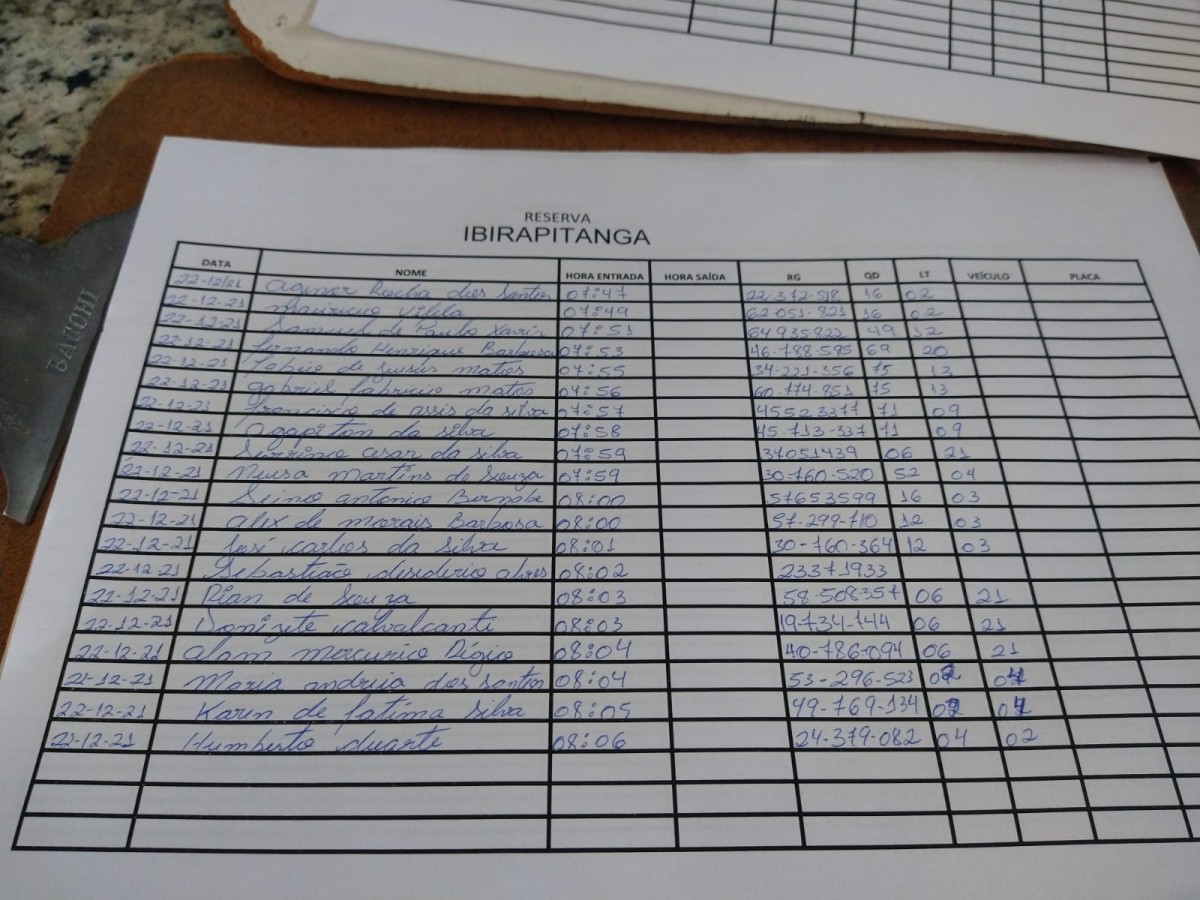 RESERVA
IBIRAPITANGA
DATA NOME HORA ENTRADA HORA SAÍDA RG QD LT VEÍCULO PLACA
22-12/21 Agenor Rocha dos Santos 07:47 22-372-518 16 02
22-12-21 mauricio Vilela 07:49 62-051-821 16 02
22-12-21 Samuel de Paula Xavier 07:51 64935822 49 12
22-12-21 Fernando Henrique Barbosa 07:53 46-788-595 69 20
22-12-21 de Jesus matos 07:55 34-221-356 75 13
22-12-21 gabriel fabricio matos 07:56 60-774-851 75 13
22-12-21 Francisco de assis da silva 07:57 45523377 71 09
22-12-21 Agapiton da silva 07:58 45-713-337 71 09
22-12-21 cesar da silva 07:59 37051439 06 21
22-12-21 Neusa martins de Souza 07:59 30-760-520 52 04
22-12-21 antonio Bernabe 08:00 57653599 16 03
22-12-21 alex de morais Barbosa 08:00 57-299-710 12 03
22-12-21 José carlos da silva 08:01 30-760-364 12 03
22-12-21 Sebastião desiderio alves 08:02 23371933
22-12-21 Rian de Souza 08:03 58-508357 06 21
22-12-21 Donizete calvalcante 08:03 19-734-144 06 21
22-12-21 alam mercurio 08:04 40-786-094 06 21
21-12-21 Maria andreia dos santos 08:04 53-296-523
22-12-21 Karen de fatima silva 08:05 49-769-134
22-12-21 Humberto duarte 08:06 24-379-082 04 02
BAUCHI